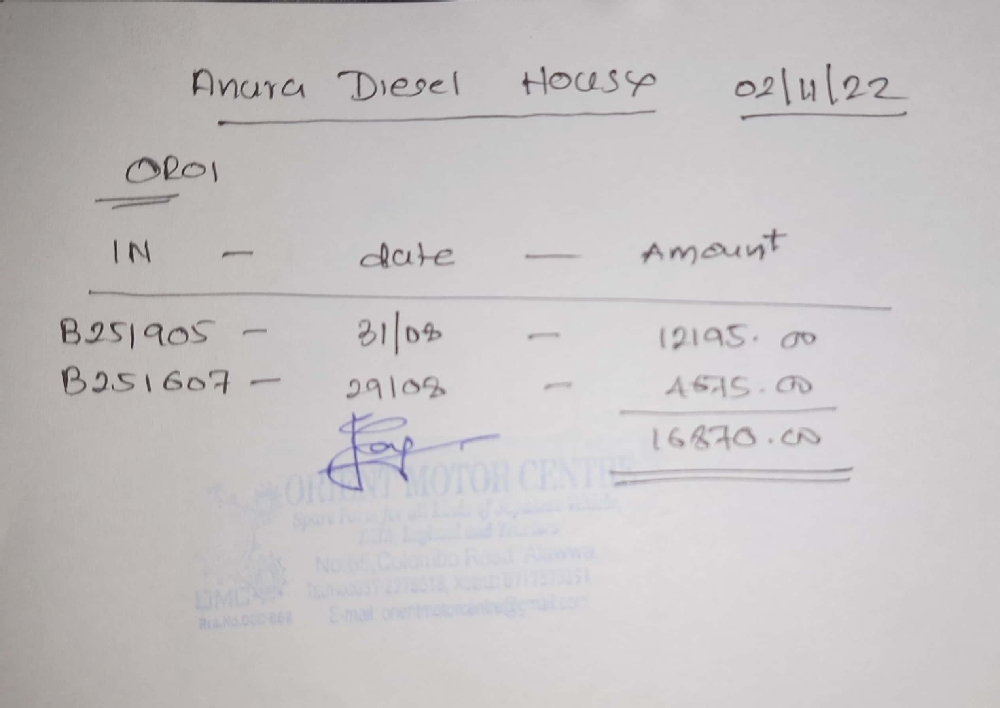 Anura Diesel House 02/11/22
OR01
IN - date - Amount
B251905 - 31/08 - 12195.00
B251607 - 29/08 - 4675.00
16870.00
ORIENT MOTOR CENTRE
Spare Parts for all kinds of Japanese Vehicle,
England and
No 65, Colombo Road, Alawwa.
OMC
E-mail: orientmotorcentre@gmail.com